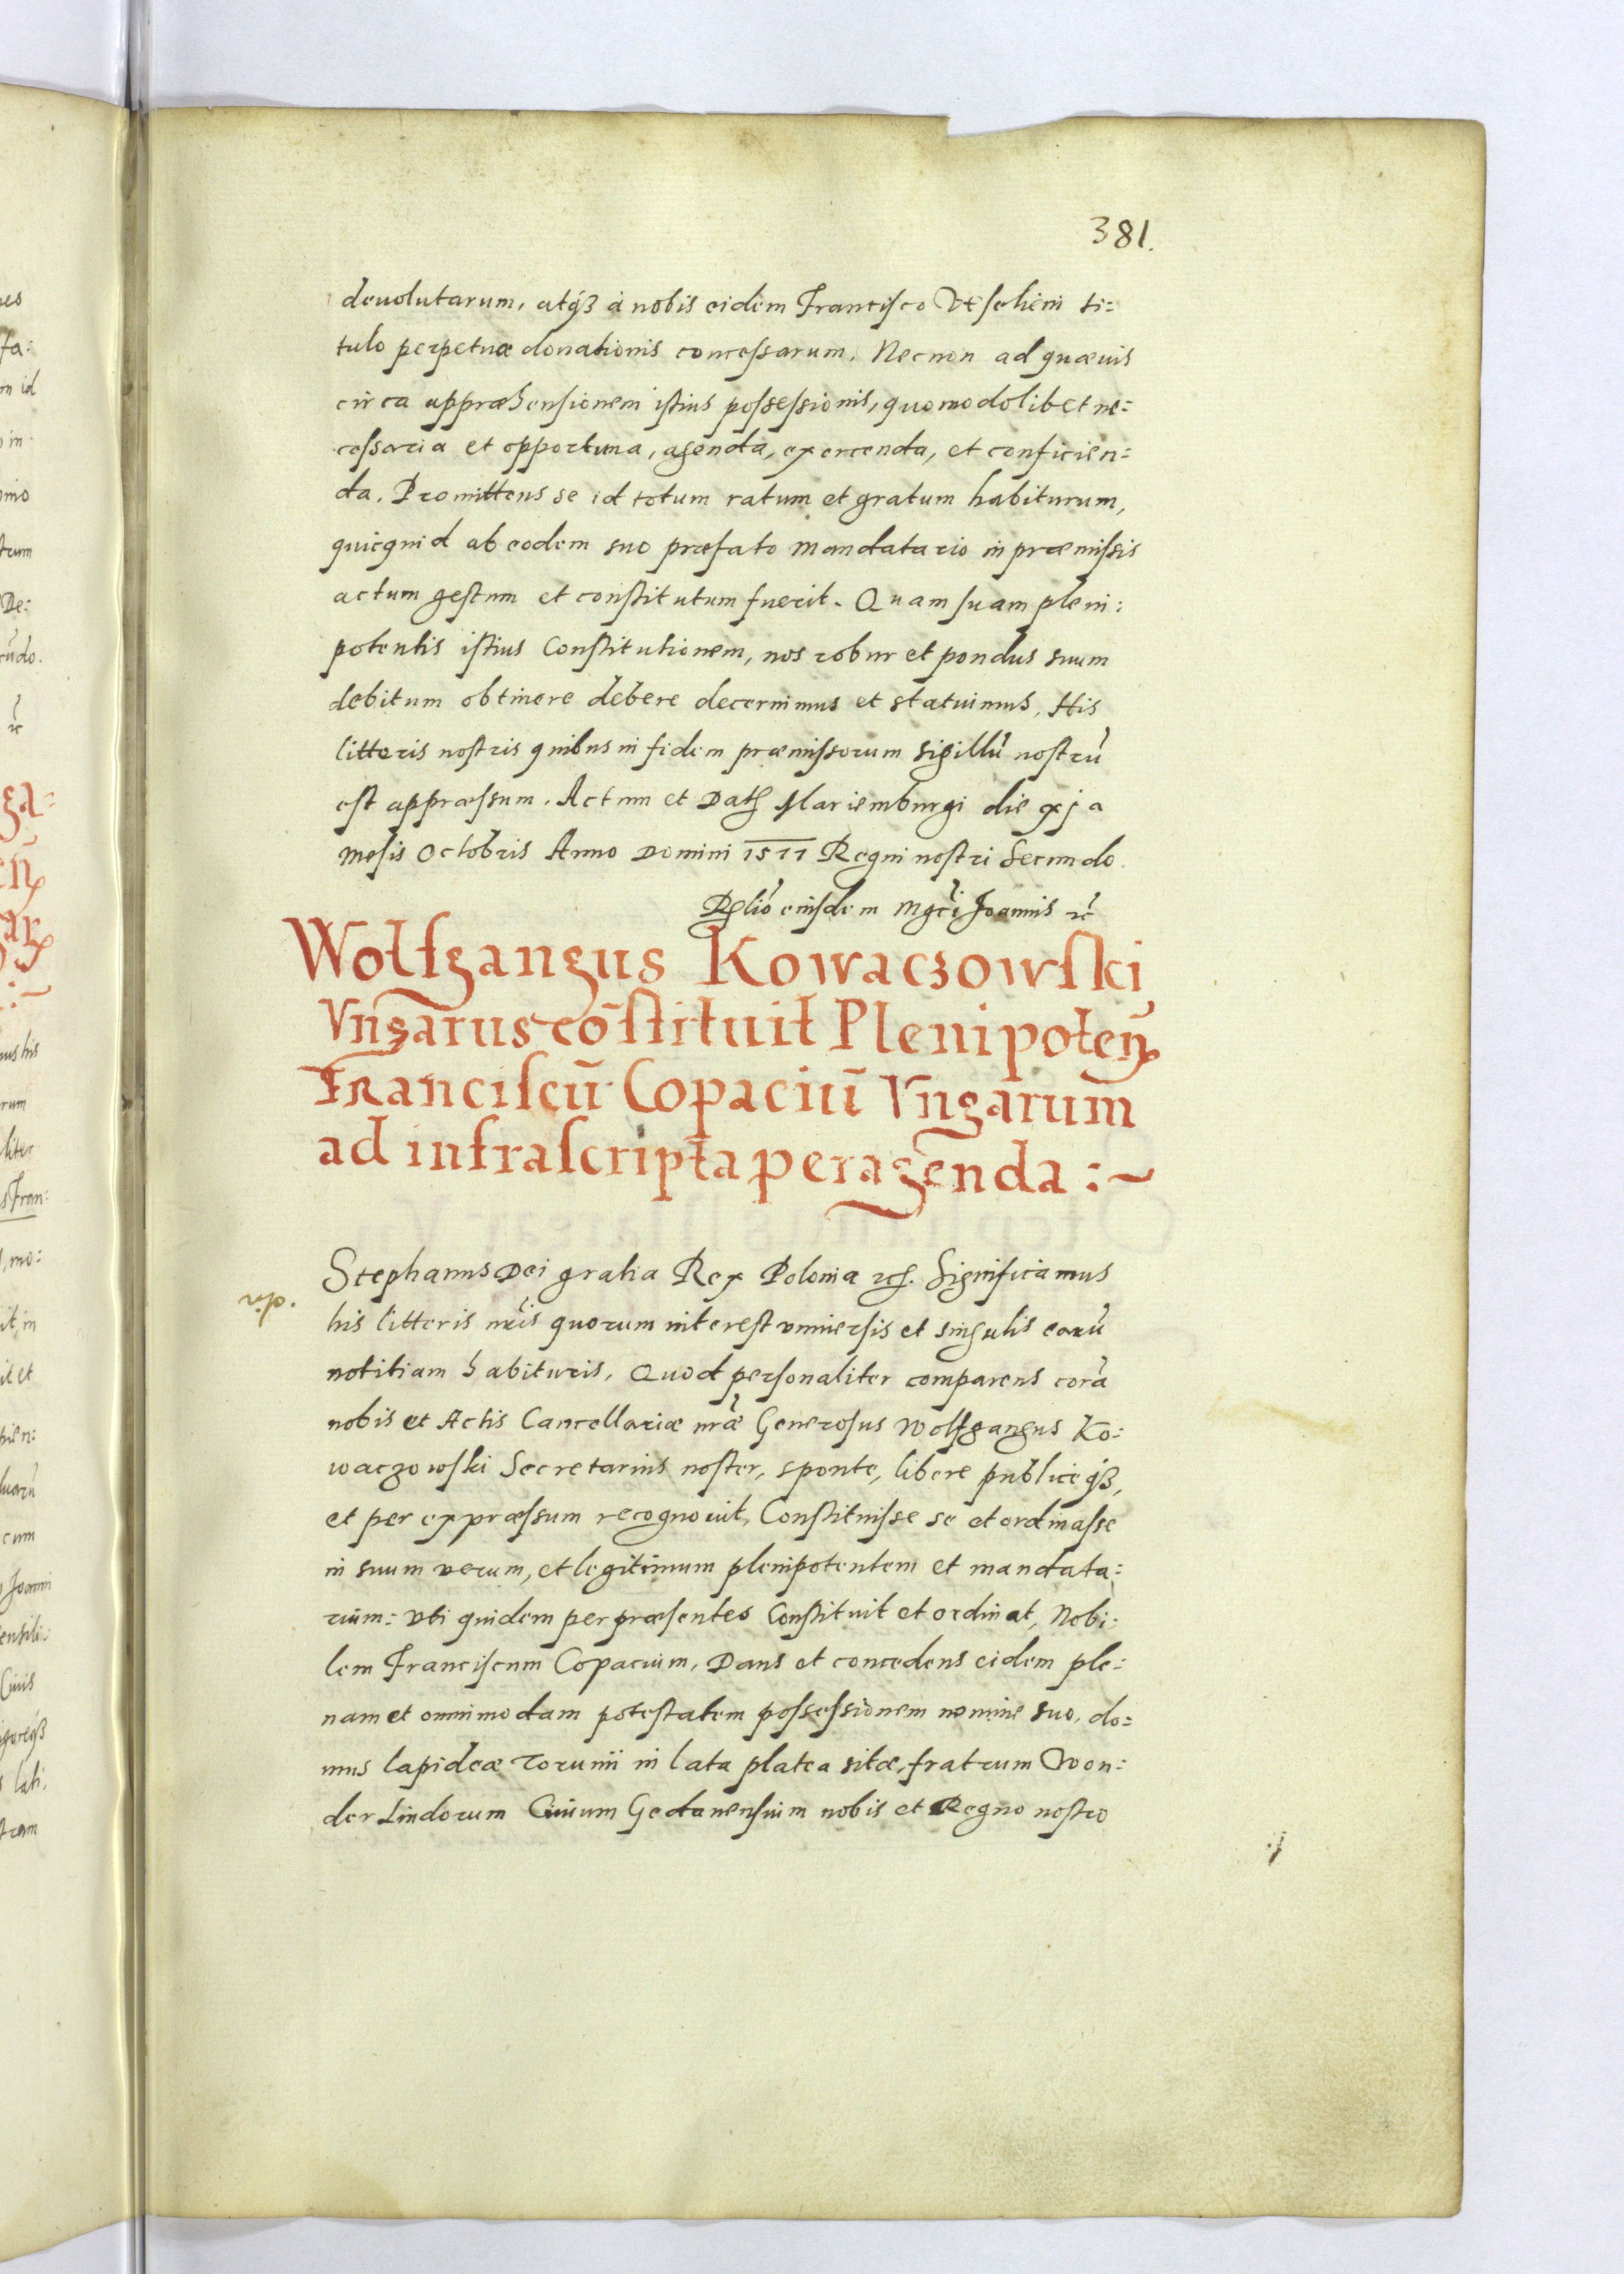 381.
deuolutarum, atqȝ à nobis eidem Francisco Veselieni ti=
tulo perpetuæ donationis concessarum. Necnon ad quæuis
circa appræhensionem istius possessionis, quomodolibet ne=
cessaria et opportuna, agenda, exercenda, et conficien=
da. Promittens se id totum ratum et gratum habiturum,
quicquid ab eodem suo præfato mandatario in præmissis
actum gestum et constitutum fuerit. Quam suam pleni:
potentis istius Constitutionem, nos robur et pondus suum
debitum obtinere debere decernimus et statuimus. His
litteris nostris quibus in fidem præmissorum sigillū nostrū
est appræssum. Actum et Datꝭ Mariemburgi die xja
mēsis Octobris Anno Domini 1577 Regni nostri Secundo.
Relio eiusdem Mgci Joannis ꝛc
Wolfgangus Kowaczowski
Vngarus cōstituit Plenipoten
Franciscū Copaciuī Vngarum
ad infrascripta peragenda :~
Stephanus Dei gratia Rex Poloniæ ꝛcꝭ. Significamus
his litteris nr̄is quorum interest vniuersis et singulis earū
notitiam habituris. Quod personaliter comparens corā
nobis et Actis Cancellariæ nr̄æ Generosus Wolfgangus Ko:
waczowski Secretarius noster, sponte, libere publiceqȝ,
et per expræssum recognouit, Constituisse se et ordinasse
in suum verum, et legitimum plenipotentem et mandata:
rium: vti quidem per præsentes Constituit et ordinat, Nobi:
lem Franciscum Copacium, Dans et concedens eidem ple:
nam et omnimodam potestatem possessionem nomine suo, do:
mus lapideæ Torunii in lata platea sitæ, fratrum Von:
der Lindorum Ciuium Gedanensium nobis et Regno nostro